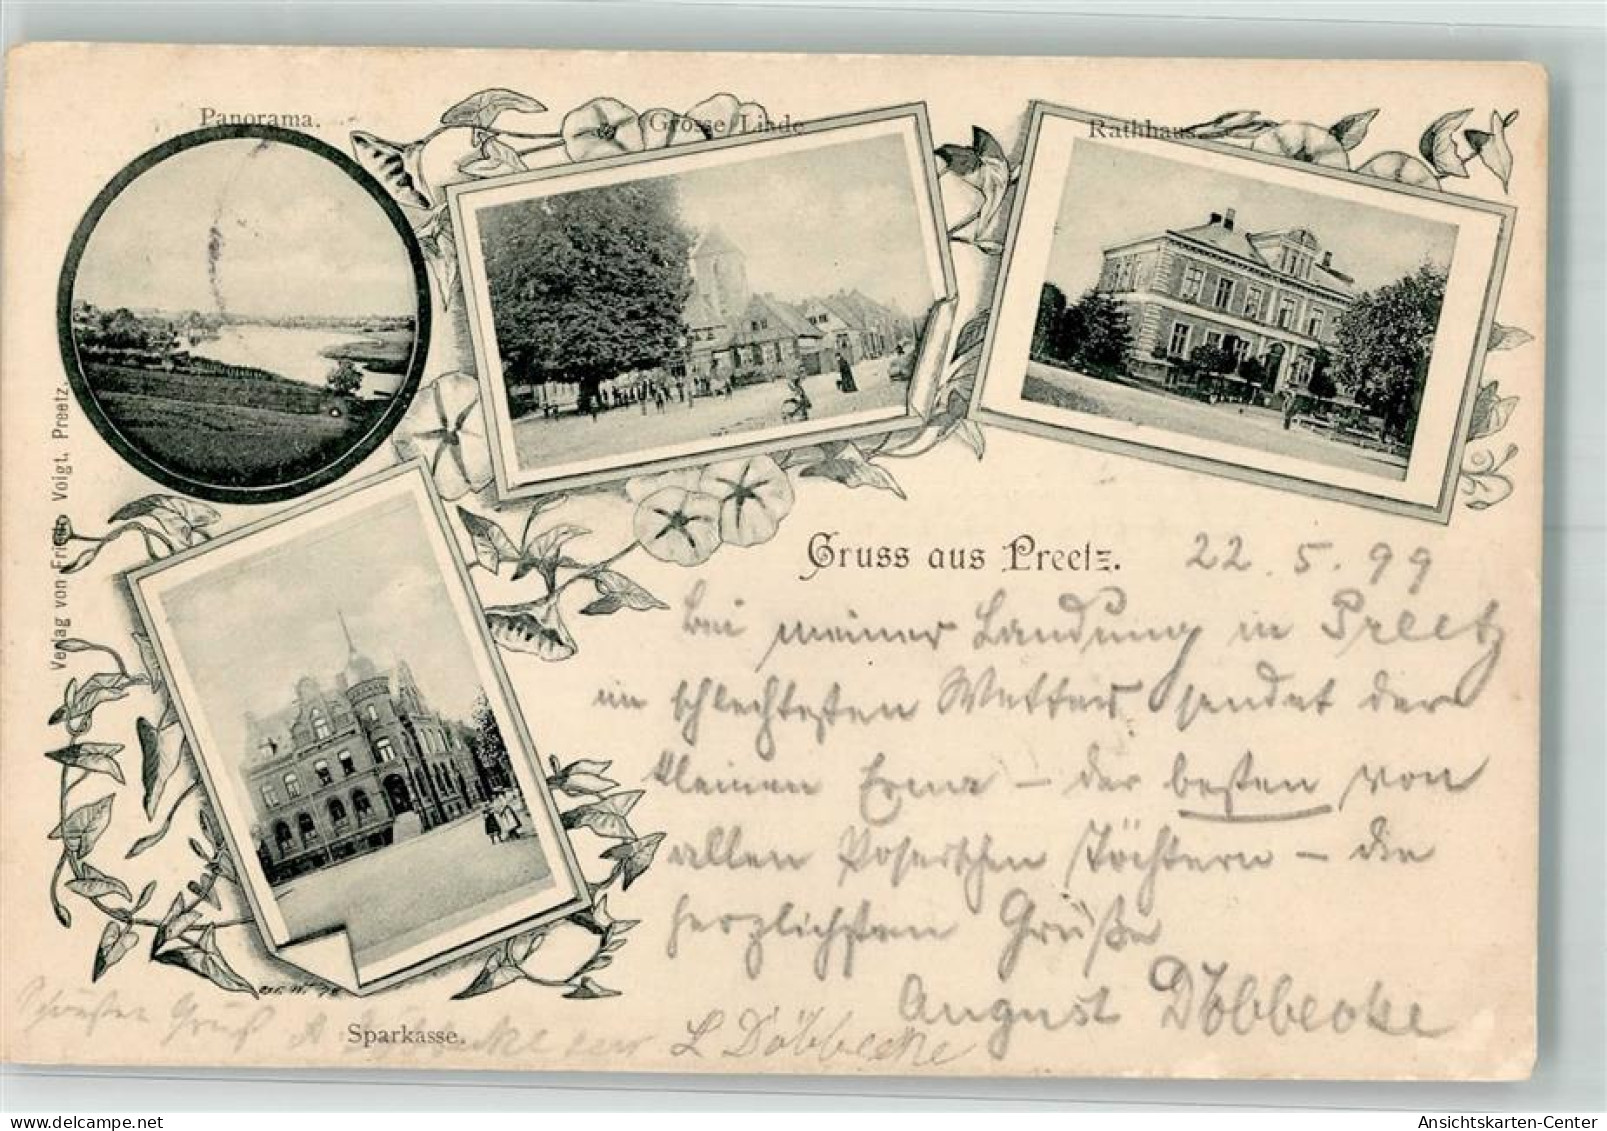 Panorama.
Grosse Linde
Rathhaus.
Verlag von Friedr. Voigt, Preetz.
Gruss aus Preetz.
22. 5. 99
Bei meiner Landung in Preetz
im schlechtesten Wetter sendet der
kleinen Erna – der besten von
allen Poserschen Töchtern – die
herzlichsten Grüße
August Döbbecke
Schönsten Gruß A Döbbecke sen L Döbbecke
Sparkasse.
Ansichtskarten-Center